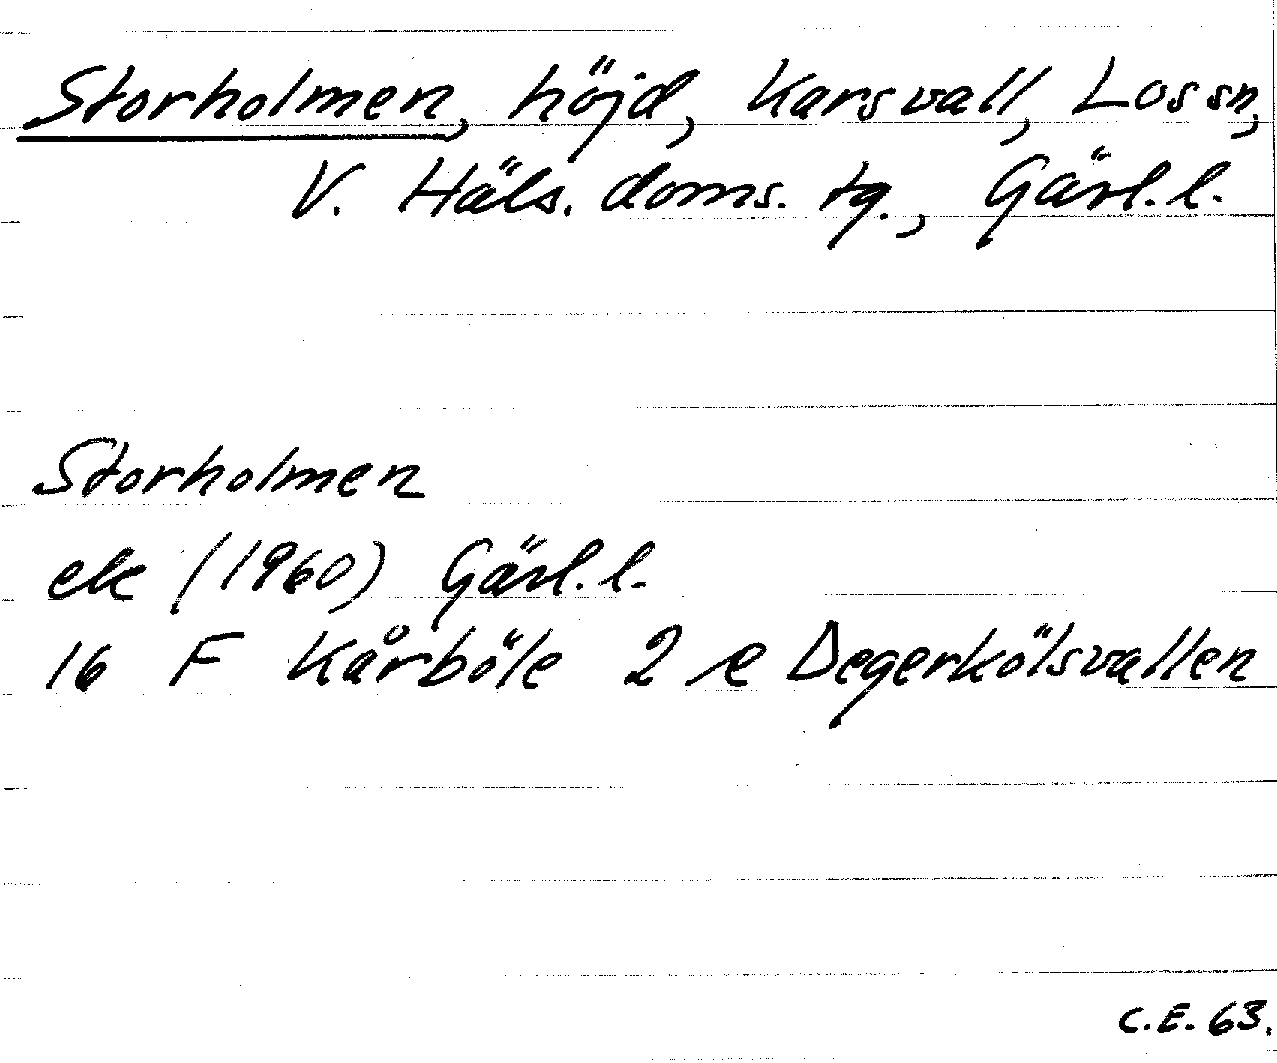 Storholmen, höjd, Karsvall, Los sn,
V. Häls. doms. tg., Gävl. l.
Storholmen
ek (1960) Gävl. l.
16 F Kårböle 2 e Degerkölsvallen
C.E. 63.